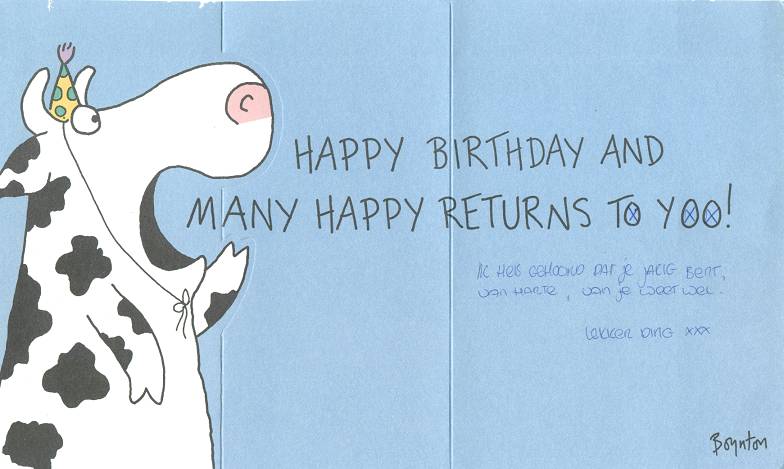 HAPPY BIRTHDAY AND
MANY HAPPY RETURNS TO YOO!
IK HEB GEHOORD DAT je JARIG BENT,
VAN HARTE, VAN je WEET WEL.
LEKKER DING xxx
Boynton